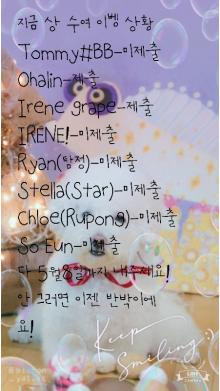 지금 상 수여 이벵 상황
Tommy#BB-미제출
Ohalin-제출
Irene grape-제출
IRENE!-미제출
Ryan(탐정)-미제출
Stella(Star)-미제출
Chloe(Rupong)-미제출
So Eun-미제출
다 5월8일까지 내주세요!
안 그러면 이젠 반박이에
요!
Keep
Smiling :)